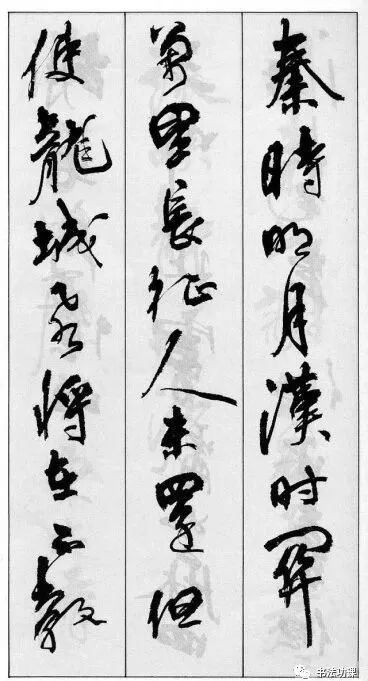 秦時明月漢时關
萬里長征人未還但
使龍城飛將在不教
书法功课